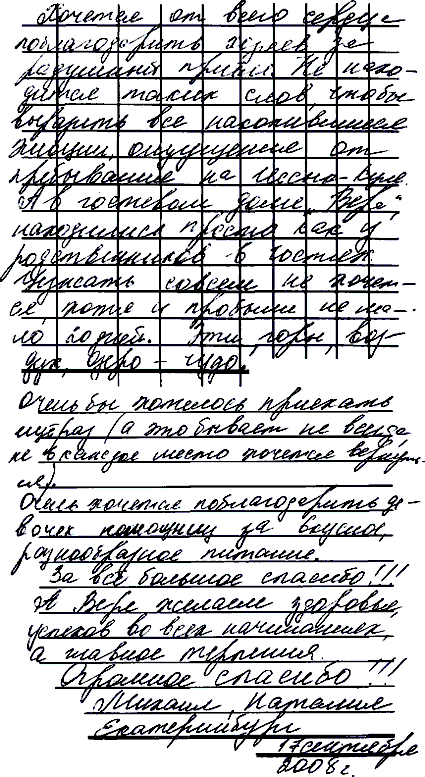 Хочется от всего сердца
поблагодарить хозяев за
радушный приём. Не нахо-
дится таких слов, чтобы
выразить все накопившиеся
эмоции, ощущения от
пребывания на Иссык-Куле.
А в гостевом доме „Вера“,
находились просто как у
родственников в гостях.
Уезжать совсем не хочет-
ся, хотя и пробыли не ма-
ло 20 дней. Эти горы, воз-
дух, озеро – чудо.
Очень бы хотелось приехать
ещё раз (а это бывает не всегда,
не в каждое место хочется вернуть-
ся).
Очень хочется поблагодарить де-
вочек помощниц за вкусное,
разнообразное питание.
За всё большое спасибо!!!
А Вере желаем здоровья,
успехов во всех начинаниях,
а главное терпения.
Огромное спасибо!!!
Михаил, Наталия
Екатеринбург
17 сентября
2008 г.